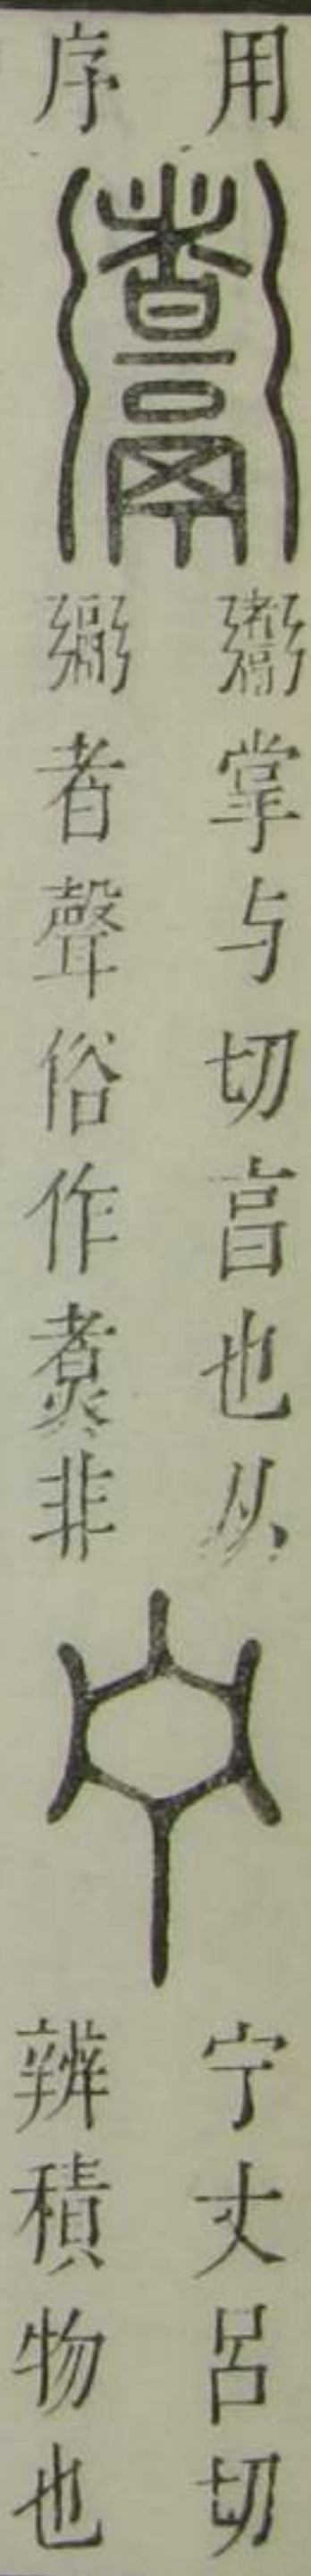 用
序
𩱰
𩱰掌与切亯也从
䰜者聲俗作煑非
宁
宁丈呂切
辨積物也